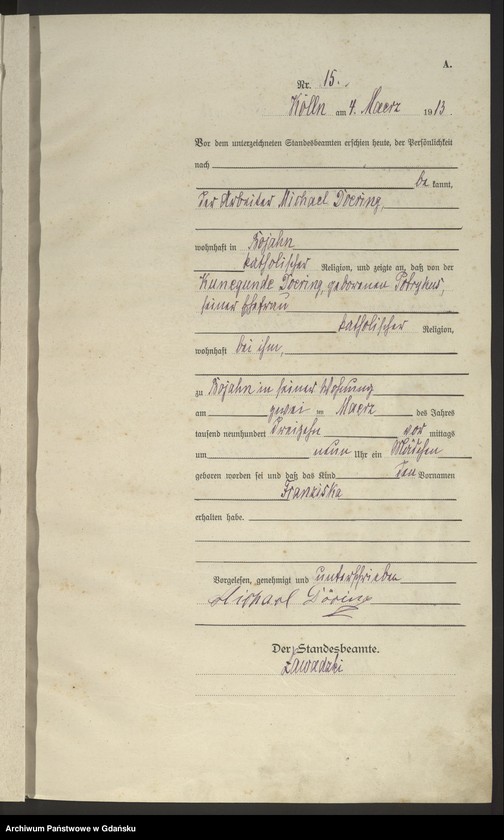 A.
Nr. 15.
Kölln am 4. Maerz 1913.
Vor dem unterzeichneten Standesbeamten erschien heute, der Persönlichkeit
nach
be kannt,
der Arbeiter Michael Doering,
wohnhaft in Bojahn
katholischer Religion, und zeigte an, daß von der
Kunegunde Doering, geborenen Potrykus,
seiner Ehefrau
katholischer Religion,
wohnhaft bei ihm,
zu Bojahn in seiner Wohnung
am zwei ten Maerz des Jahres
tausend neunhundert dreizehn vor mittags
um neun Uhr ein Mädchen
geboren worden sei und daß das Kind den Vornamen
Franziska
erhalten habe.
Vorgelesen, genehmigt und unterschrieben
Michael Döring
Der Standesbeamte.
Zawadzki
Archiwum Państwowe w Gdańsku